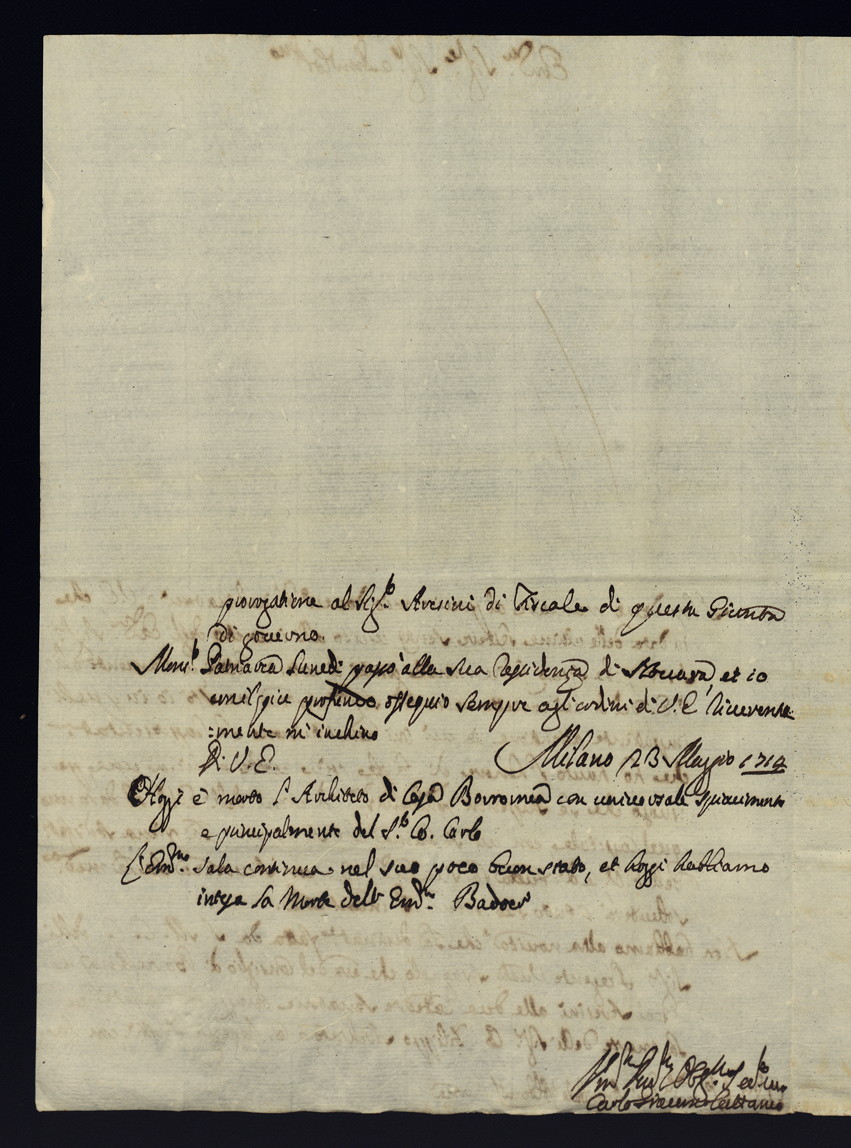 prorogatione al Sig.r Aresini di Fiscale di questa Giunta
di governo.
Mons.r Patriarca Lunedi passò alla sua Residenza di et io
con ossequio sempre agl'ordini di V. E. riverente
:mente mi inchino
Di V. E. Milano 23 Maggio 1714
Hoggi è morto l'Architetto di Casa Borromea con universale spiacimento
e principalmente del S.r Co. Carlo
L'Em.mo Sala continua nel suo poco buon stato, et hoggi habbiamo
intesa la Morte dell' Em.mo Badoer
Carlo Giacomo Cattaneo